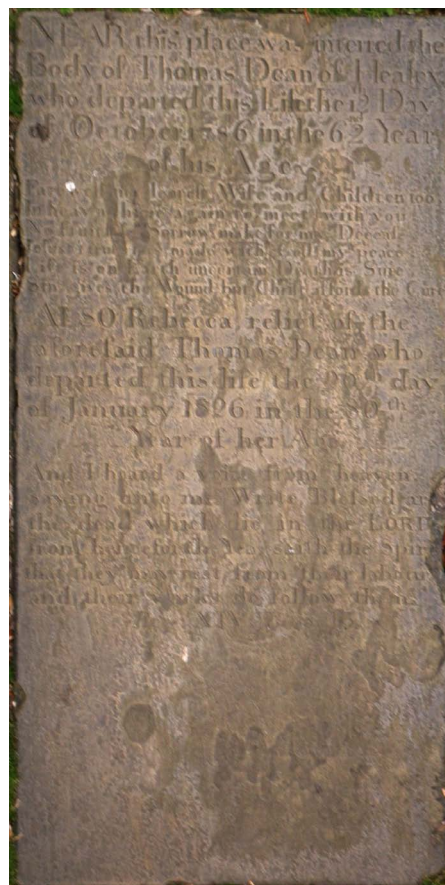 NEAR this place was interred the
Body of Thomas Dean of Healey
who departed this Life the 12 Day
of October 1786 in the 62d Year
of his Age
Farewell my Wife and Children too
In heaven I hope again to meet with you
Sorrow make for my Decease
I made with God my peace
Life is on Earth uncertain Death is Sure
Sin gives the Wound but Christ affords the Cure
ALSO Rebecca relict of the
aforesaid Thomas Dean who
departed this life the day
of January 1826 in the th
Year of her Age
And I heard a voice from heaven
saying unto me Write Blessed are
the dead which die in the LORD
from henceforth Yea saith the Spirit
that they may rest from their labours
and their works do follow them